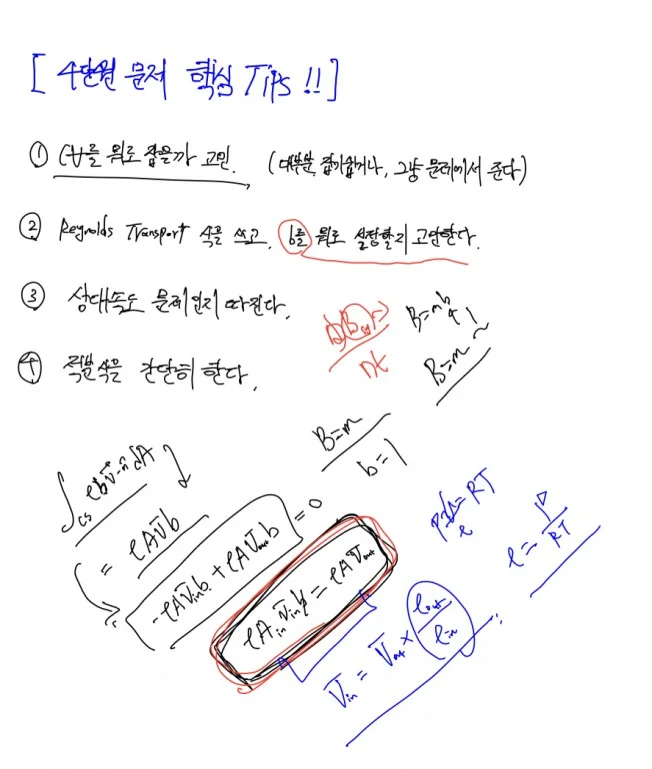 [ 4단원 문제 핵심 Tips !! ]
① CV를 뭐로 잡을까 고민. (대부분 잡기쉽거나, 그냥 문제에서 준다)
② Reynolds Transport 식을 쓰고, b를 뭐로 설정할지 고민한다.
③ 상대속도 문제인지 따진다.
④ 적분식을 간단히 한다.
DBsys
Dt
B=mb
B=m
B=m
b=1
∫cs ρb v⃗·n̂ dA
= ρAV̄b
-ρAV̄inb + ρAV̄outb = 0
ρAinV̄inb = ρAV̄out
ρ = P/RT
V̄in = V̄out × ρout/ρin